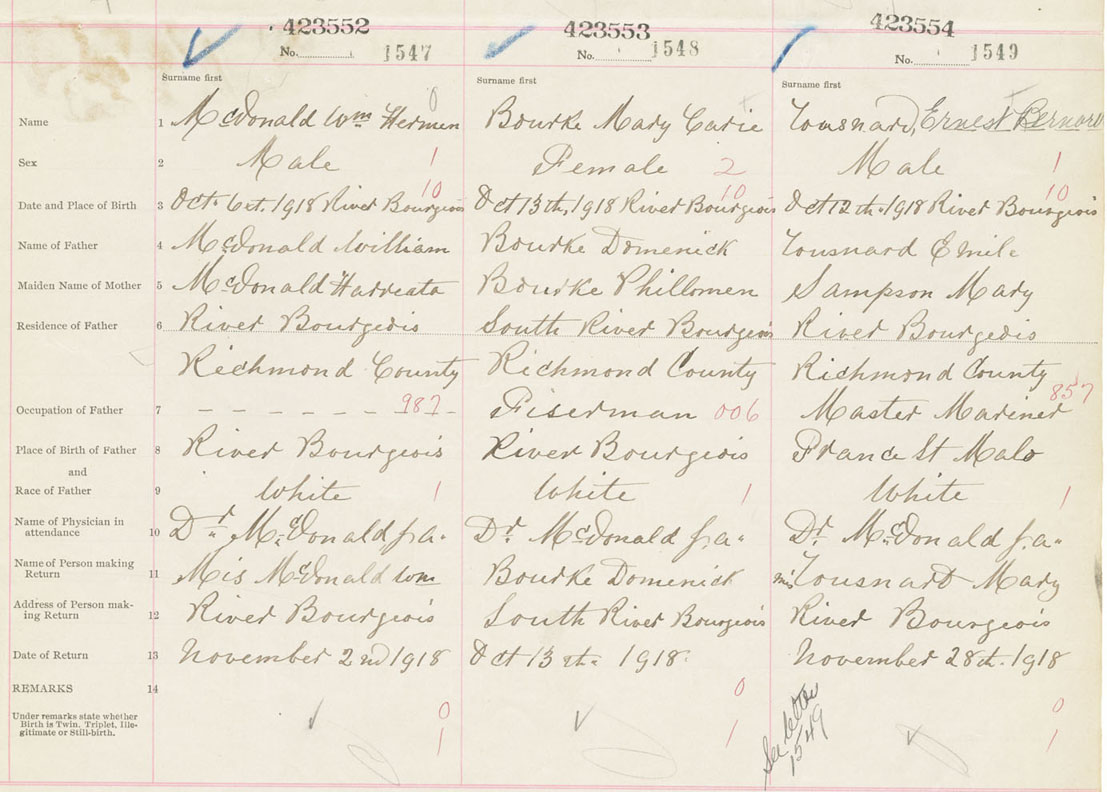 423552 423553 423554
No. 1547 No. 1548 No. 1549
Surname first Surname first Surname first
0
Name 1 McDonald Wm Hermen Bourke Mary Carie Tousnard, Ernest Bernard
Sex 2 Male 1 Female 2 Male 1
10 10 10
Date and Place of Birth 3 Oct. 6st. 1918 River Bourgeois Oct 13th, 1918 River Bourgeois Oct 12th. 1918 River Bourgeois
Name of Father 4 McDonald William Bourke Domenick Tousnard Emile
Maiden Name of Mother 5 McDonald Harreata Bourke Phillomen Sampson Mary
Residence of Father 6 River Bourgeois South River Bourgeois River Bourgeois
Richmond County Richmond County Richmond County
Occupation of Father 7 - - - - - - 987 - Fiserman 006 Master Mariner 857
Place of Birth of Father 8 River Bourgeois River Bourgeois France St Malo
and
Race of Father 9 White 1 White 1 White 1
Name of Physician in
attendance 10 Dr. McDonald J.a. Dr. McDonald J.a. Dr. McDonald J.a.
Name of Person making
Return 11 Mis McDonald Wm Bourke Domenick mis Tousnard Mary
Address of Person mak-
ing Return 12 River Bourgeois South River Bourgeois River Bourgeois
Date of Return 13 November 2nd 1918 Oct 13th. 1918. November 28th. 1918
REMARKS 14
0 0 0
Under remarks state whether
Birth is Twin, Triplet, Ille-
gitimate or Still-birth.
1 1 1
See letter
1549